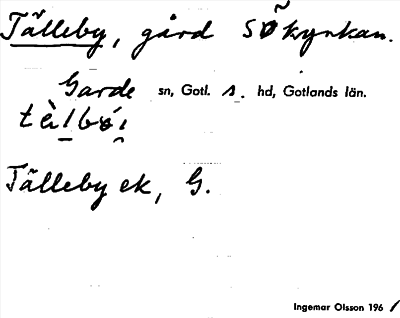 Tälleby, gård SÖ kyrkan.
Garde sn, Gotl. s. hd, Gotlands län.
Tälleby ek, G.
Ingemar Olsson 196 1